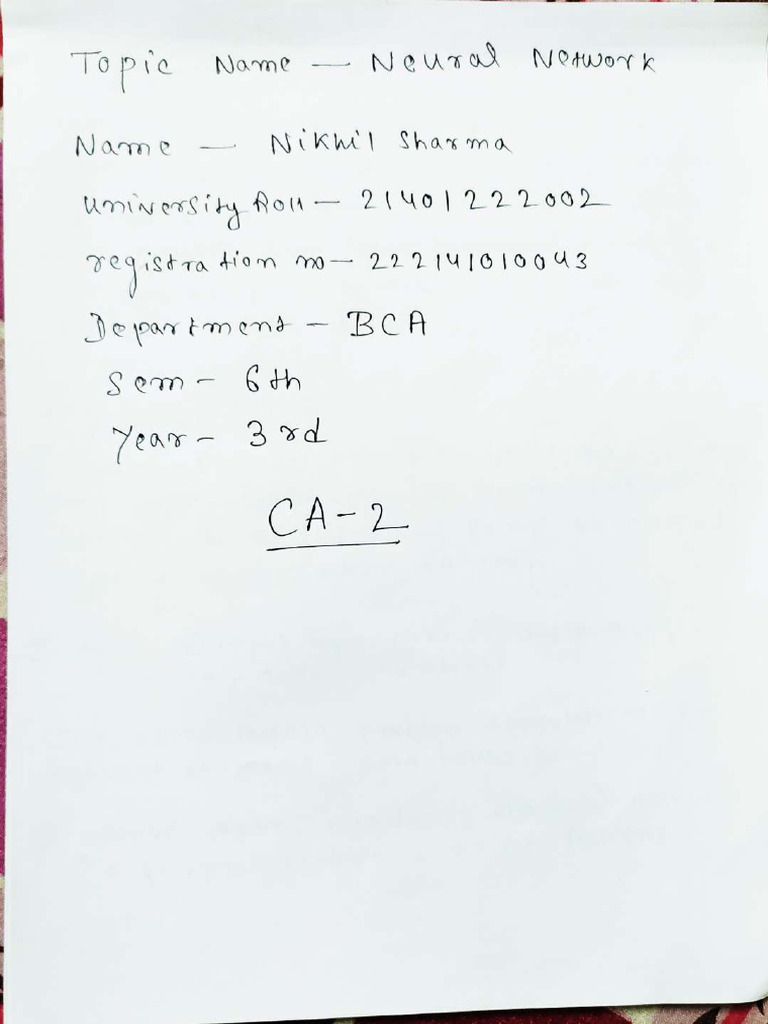 Topic Name — Neural Network
Name — Nikhil Sharma
University Roll — 21401222002
registration no — 222141010043
Department — BCA
Sem — 6th
Year — 3rd
CA-2